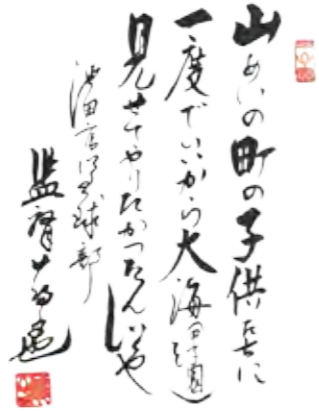 山あいの町の子供たちに
一度でいいから大海(甲子園)を
見せてやりたかったんじゃ
池田高校野球部
監督 蔦文也